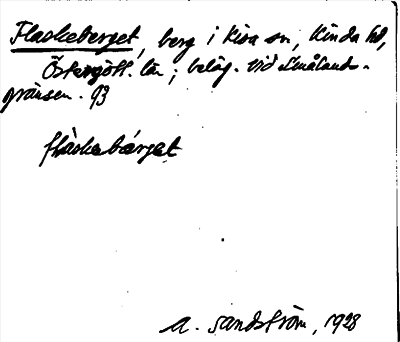 Flaskeberget, berg i Kisa sn, Kinda hd,
Östergötl. län; beläg. vid Smålands-
gränsen. 93
flàskebárget
A. Sandström, 1928